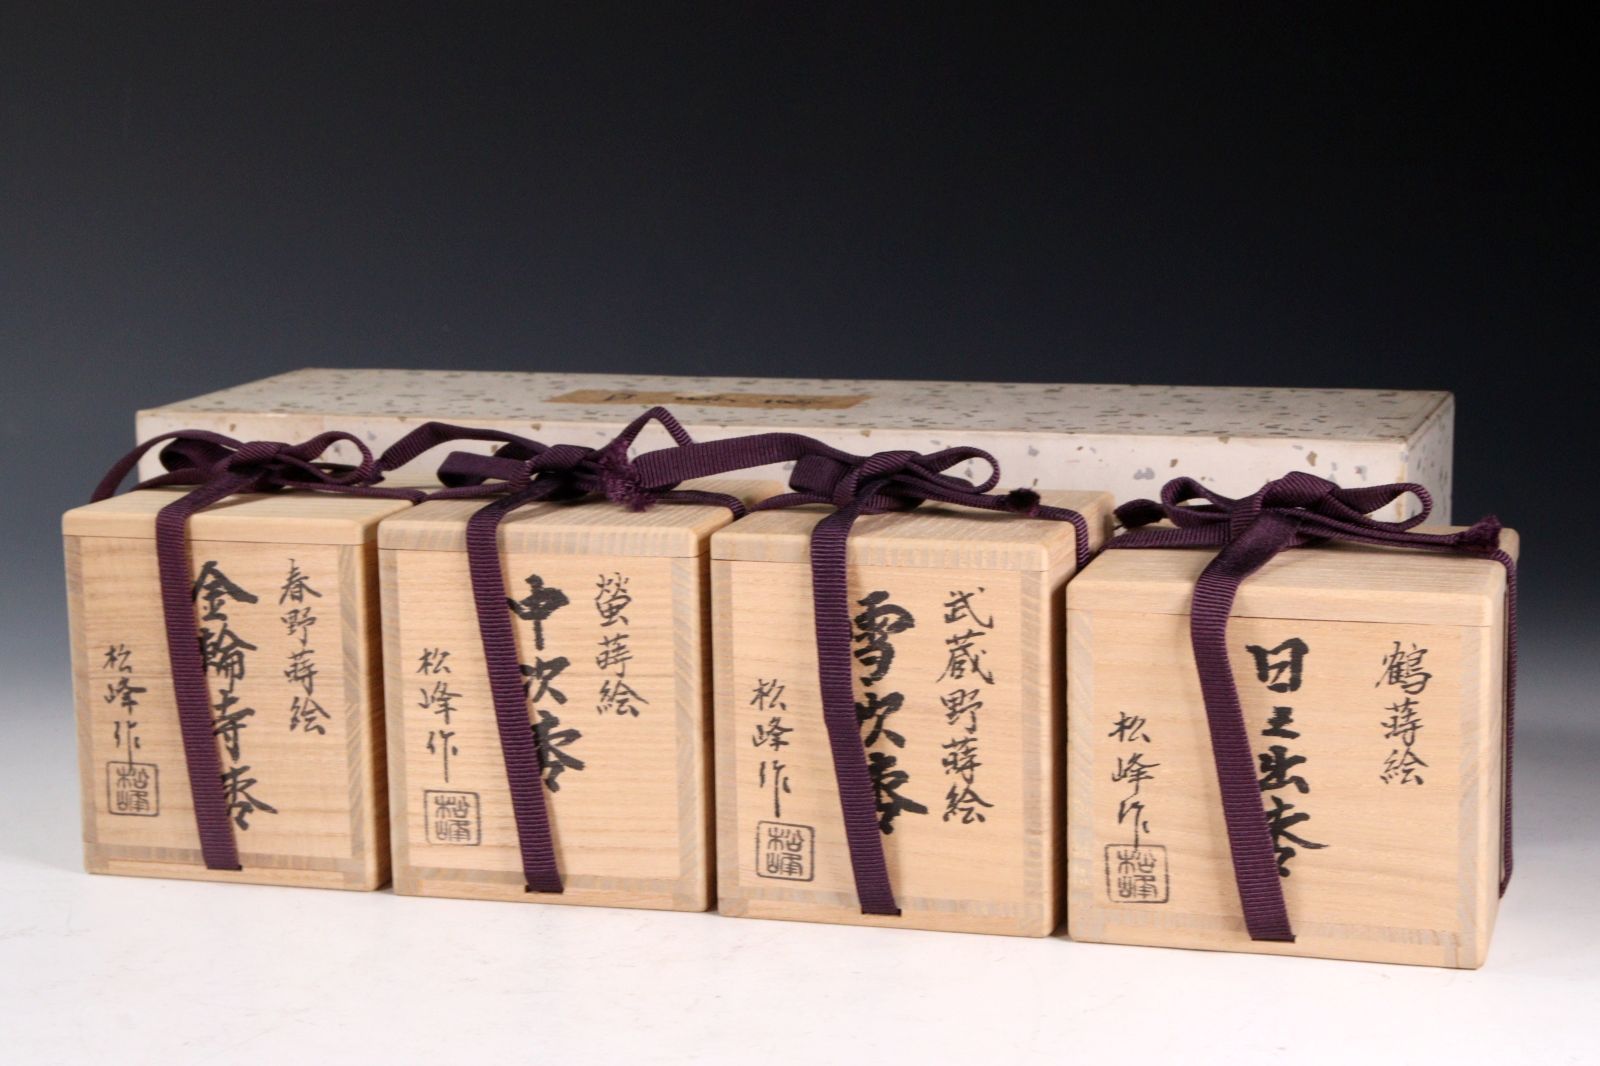 春野蒔絵
金輪寺棗
松峰作
松峰
螢蒔絵
中次棗
松峰作
松峰
武蔵野蒔絵
雪吹棗
松峰作
松峰
鶴蒔絵
日之出棗
松峰作
松峰